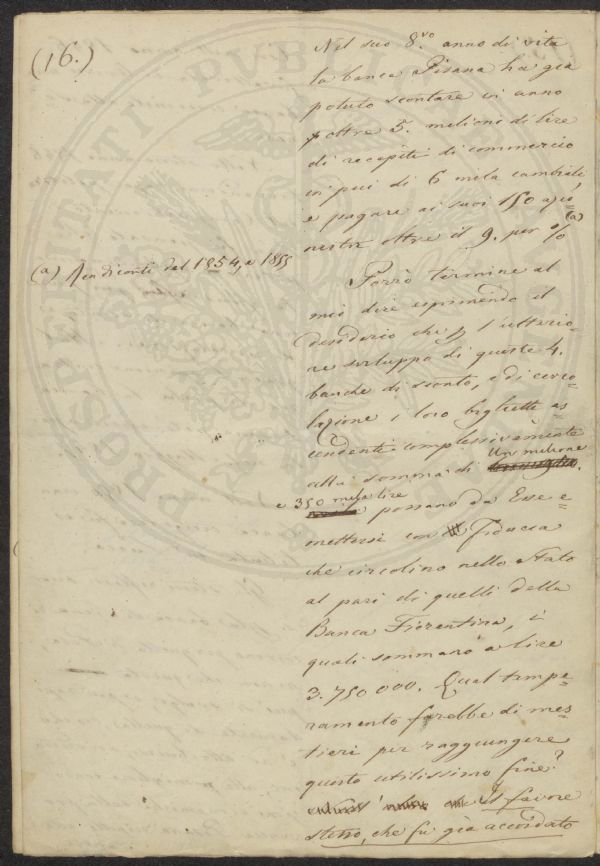 (16.)
Nel suo 8.vo anno di vita
la banca Pisana ha già
potuto scontare in anno
oltre 5. milioni di lire
di recapiti di commercio
in piu di 6 mila cambiali
e pagare ai suoi 150 azio
nisti oltre il 9. per % (a)
(a) Rendiconti del 1854, e 1855
Porrò termine al
mio dire esprimendo il
desiderio che p l'ulterio=
re sviluppo di queste 4.
banche di sconto, e di circo=
lazione i loro biglietti as
cendenti complessivamente
alla somma di Un milione
e 350 mila lire possano da Esse e=
mettersi con fiducia
che circolino nello Stato
al pari di quelli della
Banca Fiorentina, i
quali sommano a lire
3.750 000. Qual tempe=
ramento farebbe di mes=
tieri per raggiungere
questo utilissimo fine?
il favore
stesso, che fu già accordato
PROSPERITATI PUBLICAE